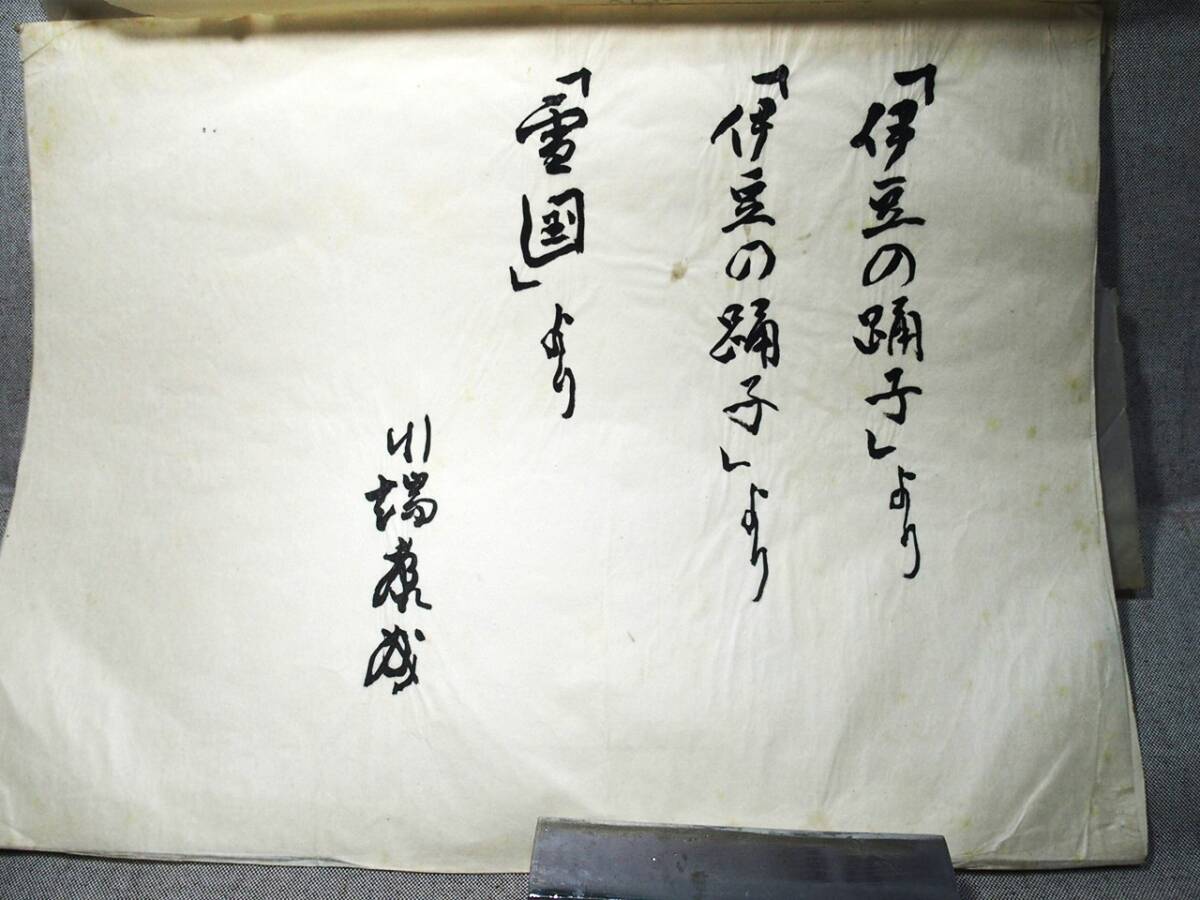 「伊豆の踊子」より
「伊豆の踊子」より
「雪国」より
川端康成